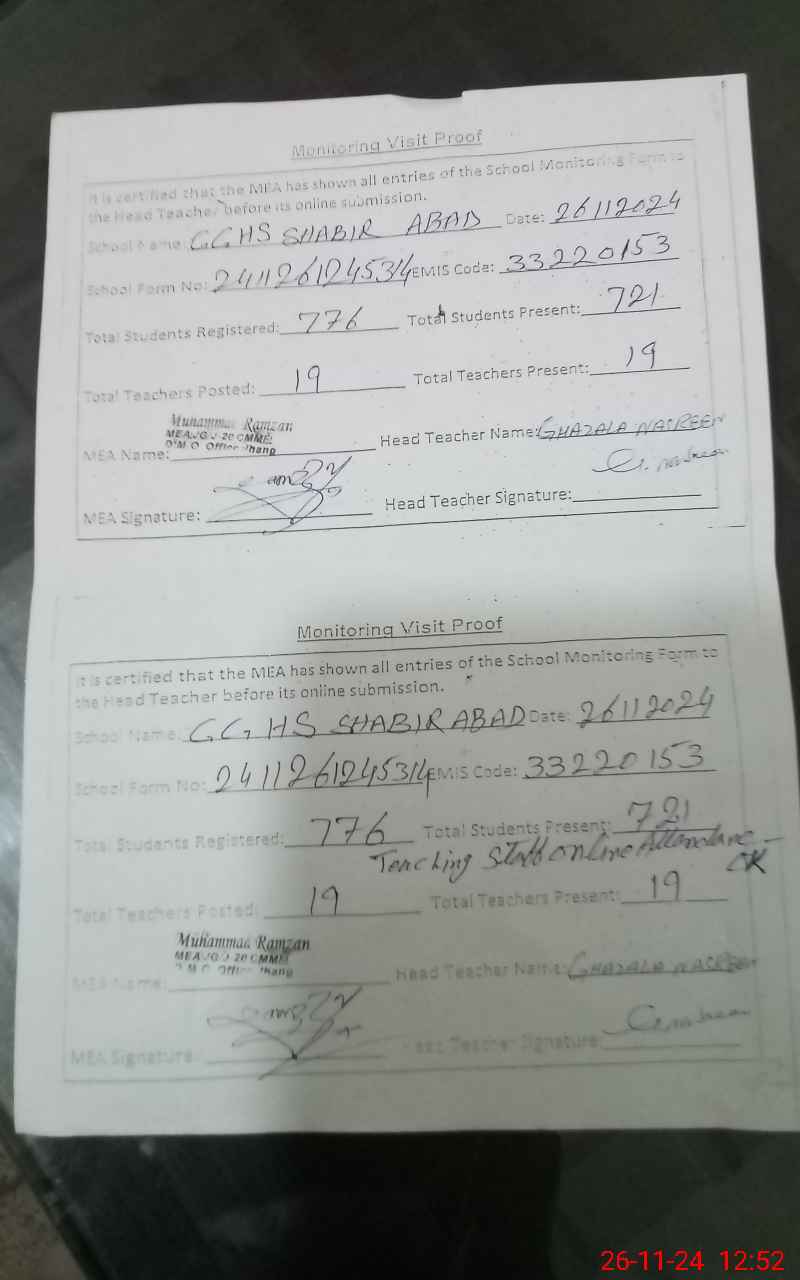 Monitoring Visit Proof
It is certified that the MEA has shown all entries of the School Monitoring Form to
the Head Teacher before its online submission.
School Name: GGHS SHABIR ABAD Date: 26112024
School Form No: 2411261245314 EMIS Code: 33220153
Total Students Registered: 776 Total Students Present: 721
Total Teachers Posted: 19 Total Teachers Present: 19
Muhammad Ramzan
MEA
D.M.O Office Jhang
MEA Name: Head Teacher Name: GHAZALA NASREEN
MEA Signature: Head Teacher Signature:
Monitoring Visit Proof
It is certified that the MEA has shown all entries of the School Monitoring Form to
the Head Teacher before its online submission.
School Name: GGHS SHABIR ABAD Date: 26112024
School Form No: 2411261245314 EMIS Code: 33220153
Total Students Registered: 776 Total Students Present: 721
Teaching Staff online Attendance -
OK
Total Teachers Posted: 19 Total Teachers Present: 19
Muhammad Ramzan
MEA
D.M.O Office Jhang
MEA Name: Head Teacher Name: GHAZALA NASREEN
MEA Signature: Head Teacher Signature:
26-11-24 12:52